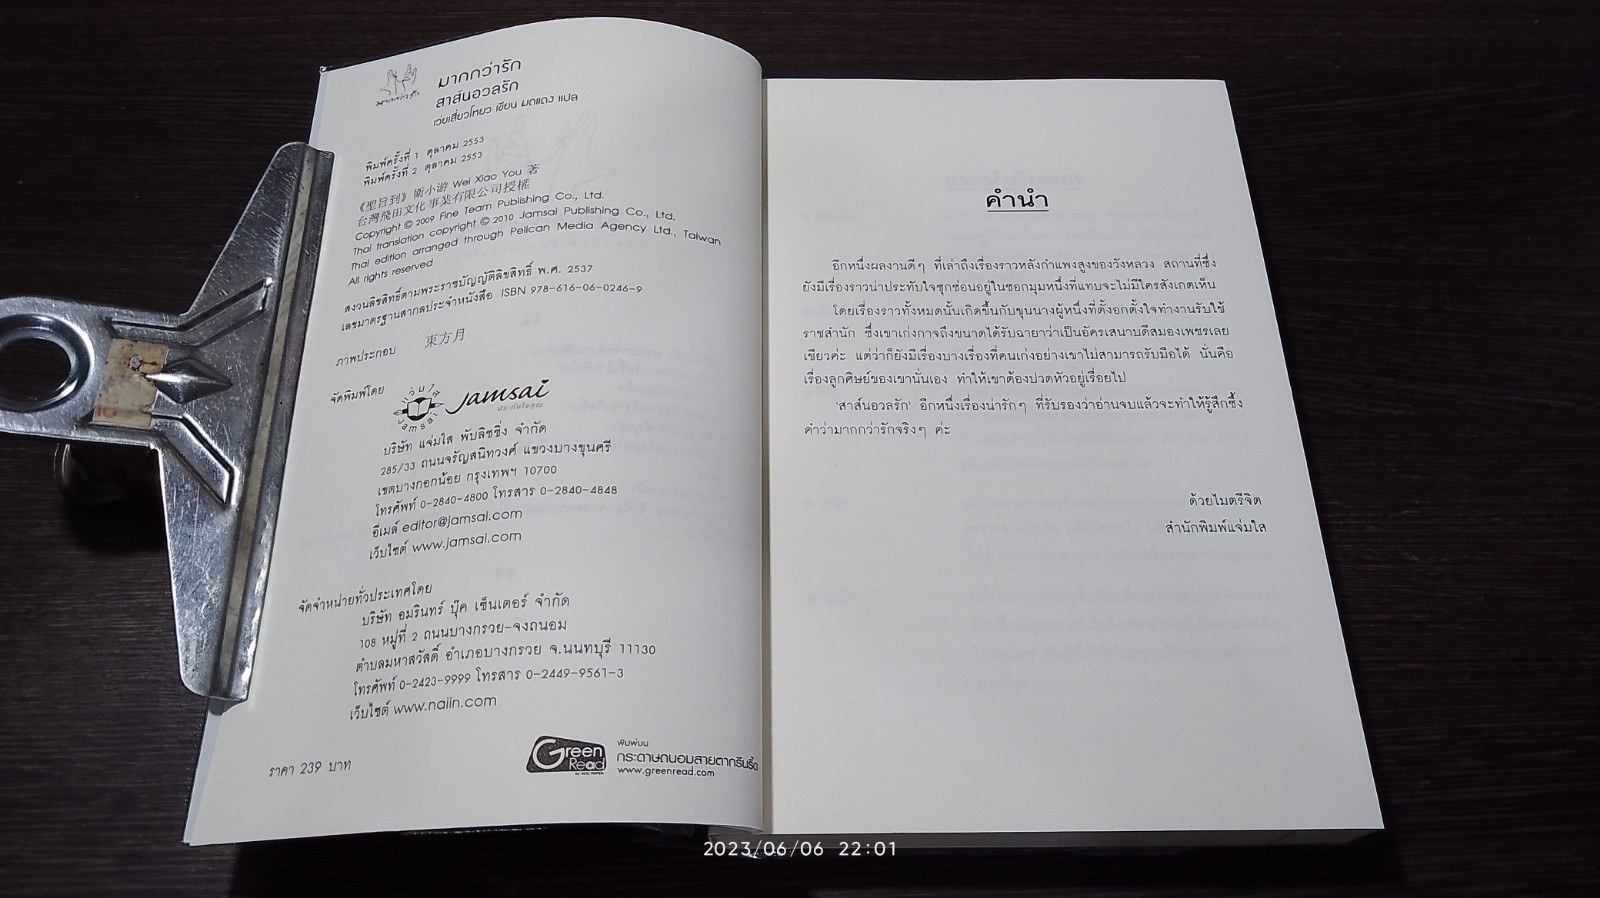 มากกว่ารัก
มากกว่ารัก
สาส์นอวลรัก
เว่ยเสี่ยวโหยว เขียน มดแดง แปล
พิมพ์ครั้งที่ 1 ตุลาคม 2553
พิมพ์ครั้งที่ 2 ตุลาคม 2553
《聖旨到》衛小游 Wei Xiao You 著
台灣飛田文化事業有限公司授權
Copyright © 2009 Fine Team Publishing Co., Ltd.
Thai translation copyright © 2010 Jamsai Publishing Co., Ltd.
Thai edition arranged through Pelican Media Agency Ltd., Taiwan
All rights reserved
สงวนลิขสิทธิ์ตามพระราชบัญญัติลิขสิทธิ์ พ.ศ. 2537
เลขมาตรฐานสากลประจำหนังสือ ISBN 978-616-06-0246-9
ภาพประกอบ 東方月
จัดพิมพ์โดย
Jamsai
บริษัท แจ่มใส พับลิชชิ่ง จำกัด
285/33 ถนนจรัญสนิทวงศ์ แขวงบางขุนศรี
เขตบางกอกน้อย กรุงเทพฯ 10700
โทรศัพท์ 0-2840-4800 โทรสาร 0-2840-4848
อีเมล์ editor@jamsai.com
เว็บไซต์ www.jamsai.com
จัดจำหน่ายทั่วประเทศโดย
บริษัท อมรินทร์ บุ๊ค เซ็นเตอร์ จำกัด
108 หมู่ที่ 2 ถนนบางกรวย-จงถนอม
ตำบลมหาสวัสดิ์ อำเภอบางกรวย จ.นนทบุรี 11130
โทรศัพท์ 0-2423-9999 โทรสาร 0-2449-9561-3
เว็บไซต์ www.naiin.com
ราคา 239 บาท
Green
Read
พิมพ์บน
กระดาษถนอมสายตากรีนรี้ด
www.greenread.com
คำนำ
อีกหนึ่งผลงานดีๆ ที่เล่าถึงเรื่องราวหลังกำแพงสูงของวังหลวง สถานที่ซึ่ง
ยังมีเรื่องราวน่าประทับใจซุกซ่อนอยู่ในซอกมุมหนึ่งที่แทบจะไม่มีใครสังเกตเห็น
โดยเรื่องราวทั้งหมดนั้นเกิดขึ้นกับขุนนางผู้หนึ่งที่ตั้งอกตั้งใจทำงานรับใช้
ราชสำนัก ซึ่งเขาเก่งกาจถึงขนาดได้รับฉายาว่าเป็นอัครเสนาบดีสมองเพชรเลย
เชียวค่ะ แต่ว่าก็ยังมีเรื่องบางเรื่องที่คนเก่งอย่างเขาไม่สามารถรับมือได้ นั่นคือ
เรื่องลูกศิษย์ของเขานั่นเอง ทำให้เขาต้องปวดหัวอยู่เรื่อยไป
'สาส์นอวลรัก' อีกหนึ่งเรื่องน่ารักๆ ที่รับรองว่าอ่านจบแล้วจะทำให้รู้สึกซึ้ง
คำว่ามากกว่ารักจริงๆ ค่ะ
ด้วยไมตรีจิต
สำนักพิมพ์แจ่มใส
2023/06/06 22:01